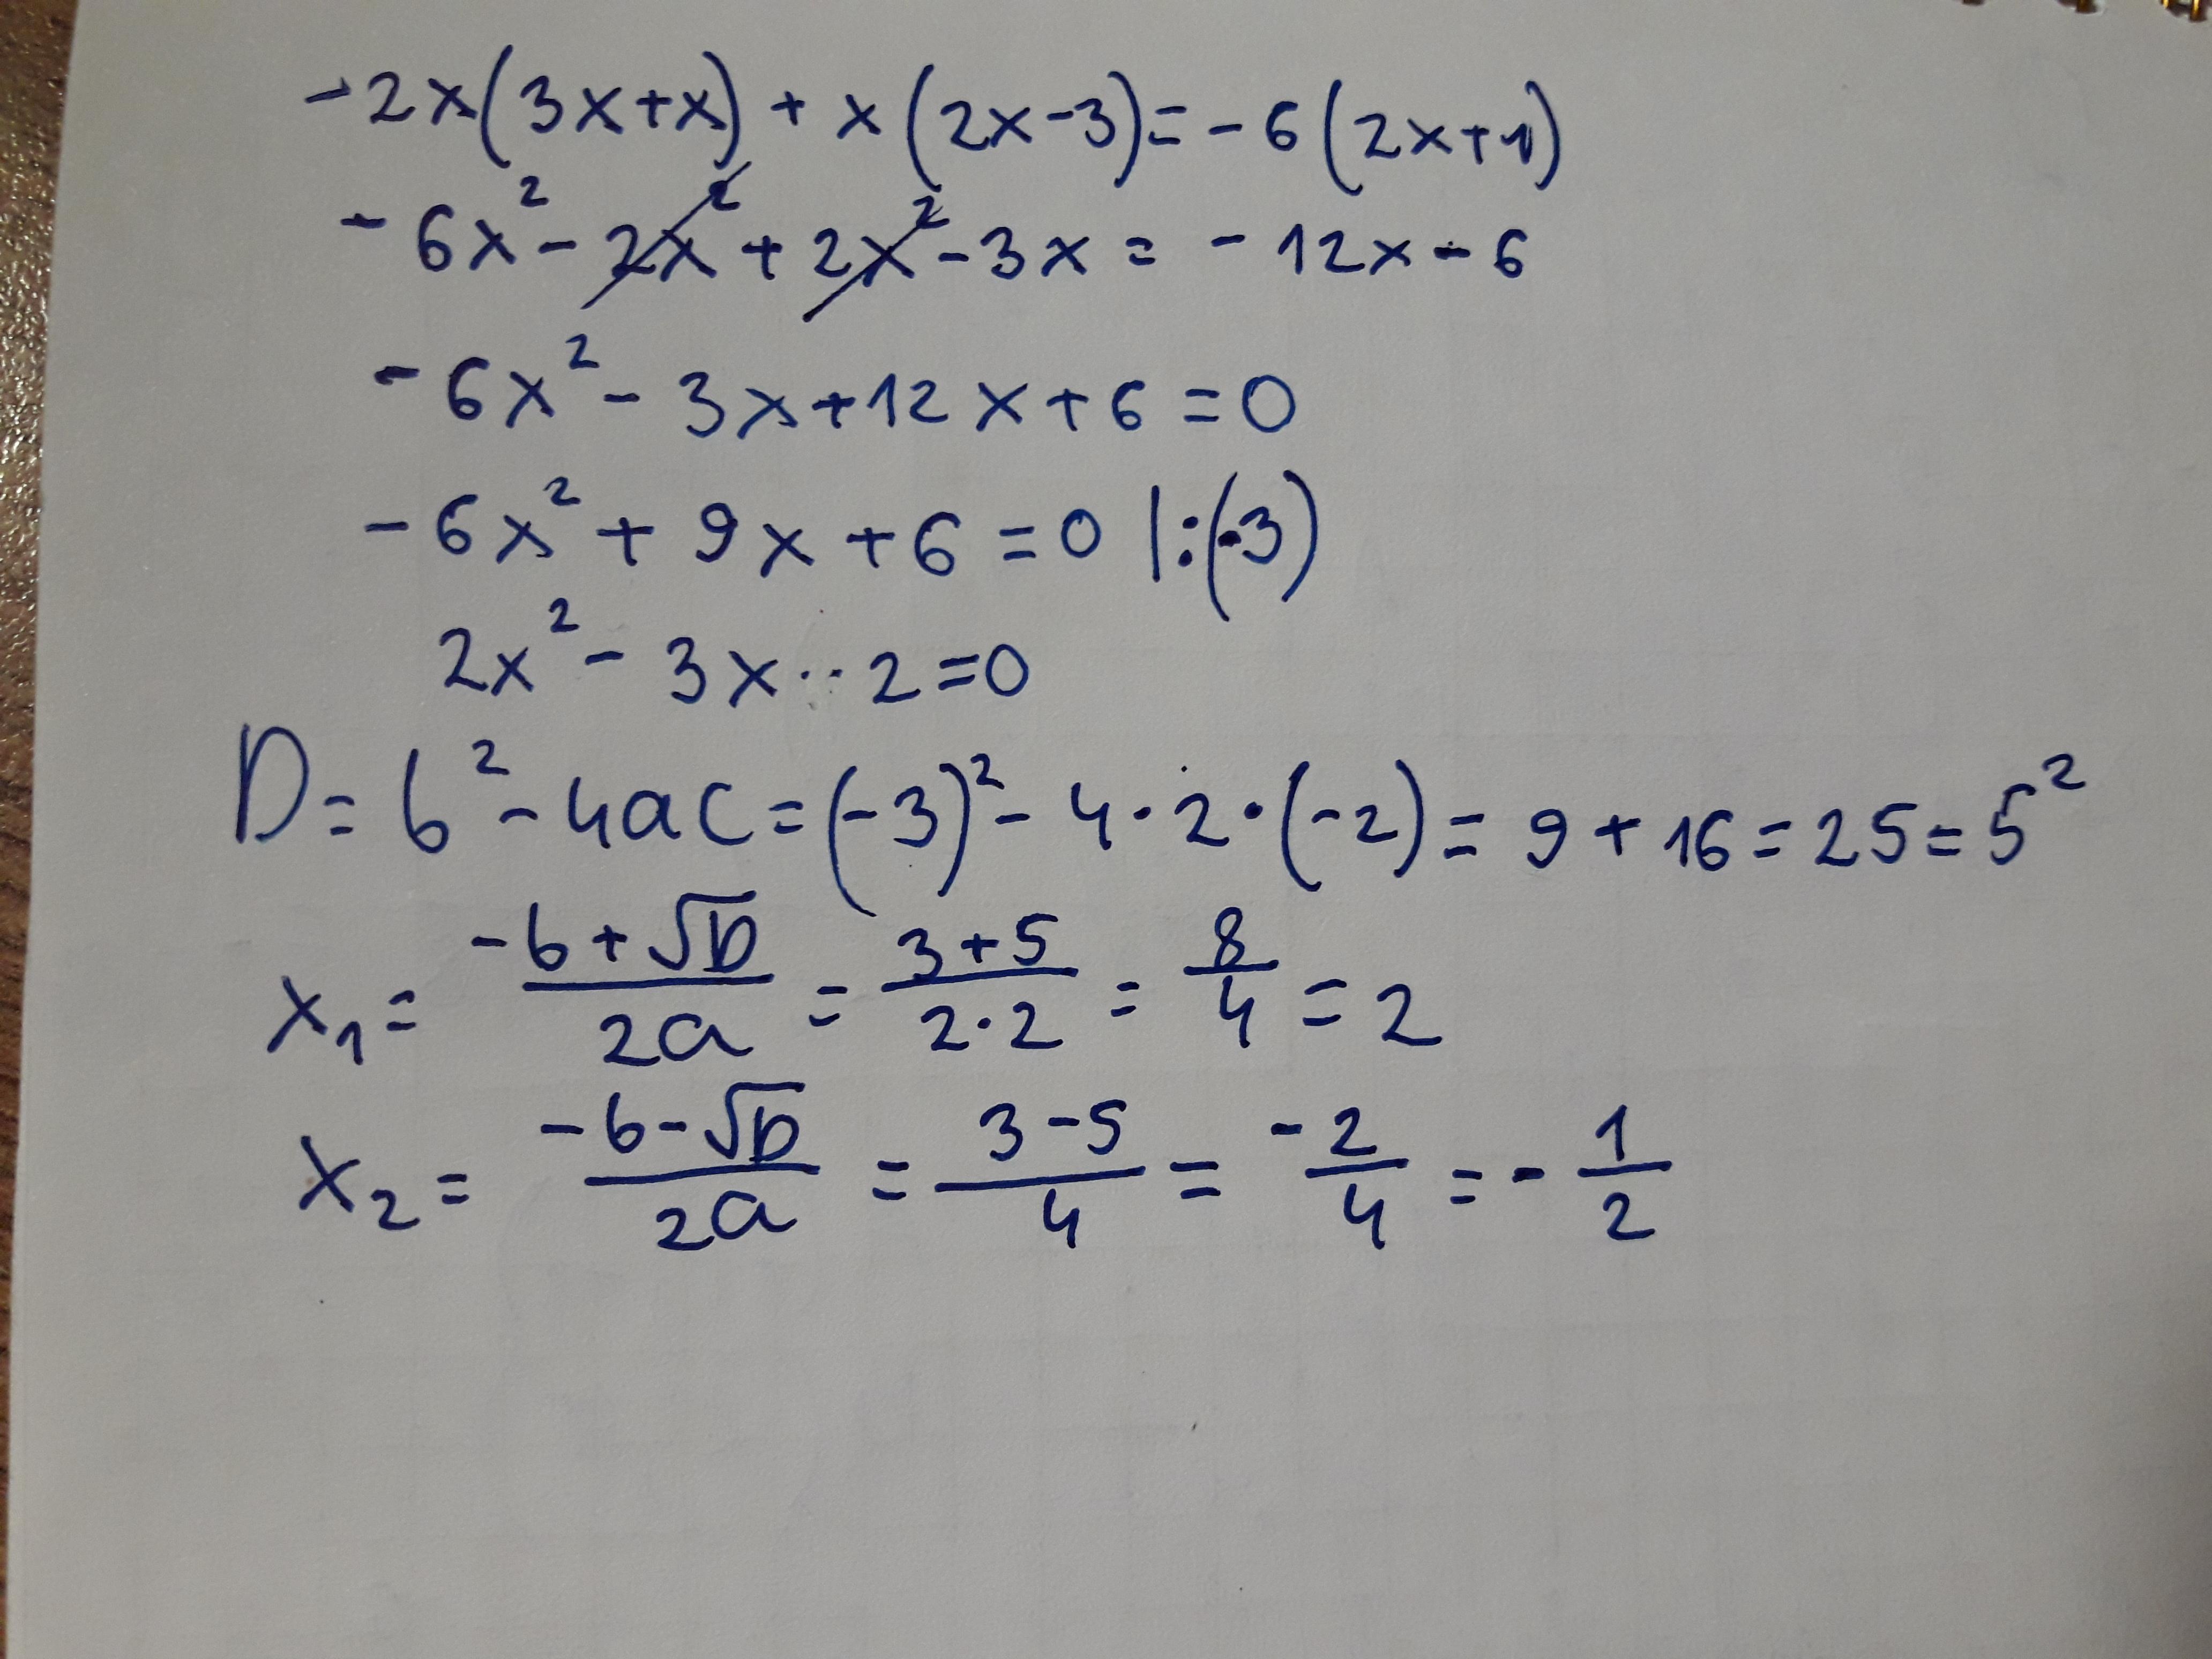 -2x(3x+x) + x(2x-3) = -6(2x+1)
-6x² - 2x² + 2x² - 3x = -12x - 6
-6x² - 3x + 12x + 6 = 0
-6x² + 9x + 6 = 0 |:(-3)
2x² - 3x - 2 = 0
D = b² - 4ac = (-3)² - 4·2·(-2) = 9 + 16 = 25 = 5²
x₁ = (-b + √D)/(2a) = (3+5)/(2·2) = 8/4 = 2
x₂ = (-b - √D)/(2a) = (3-5)/4 = -2/4 = -1/2